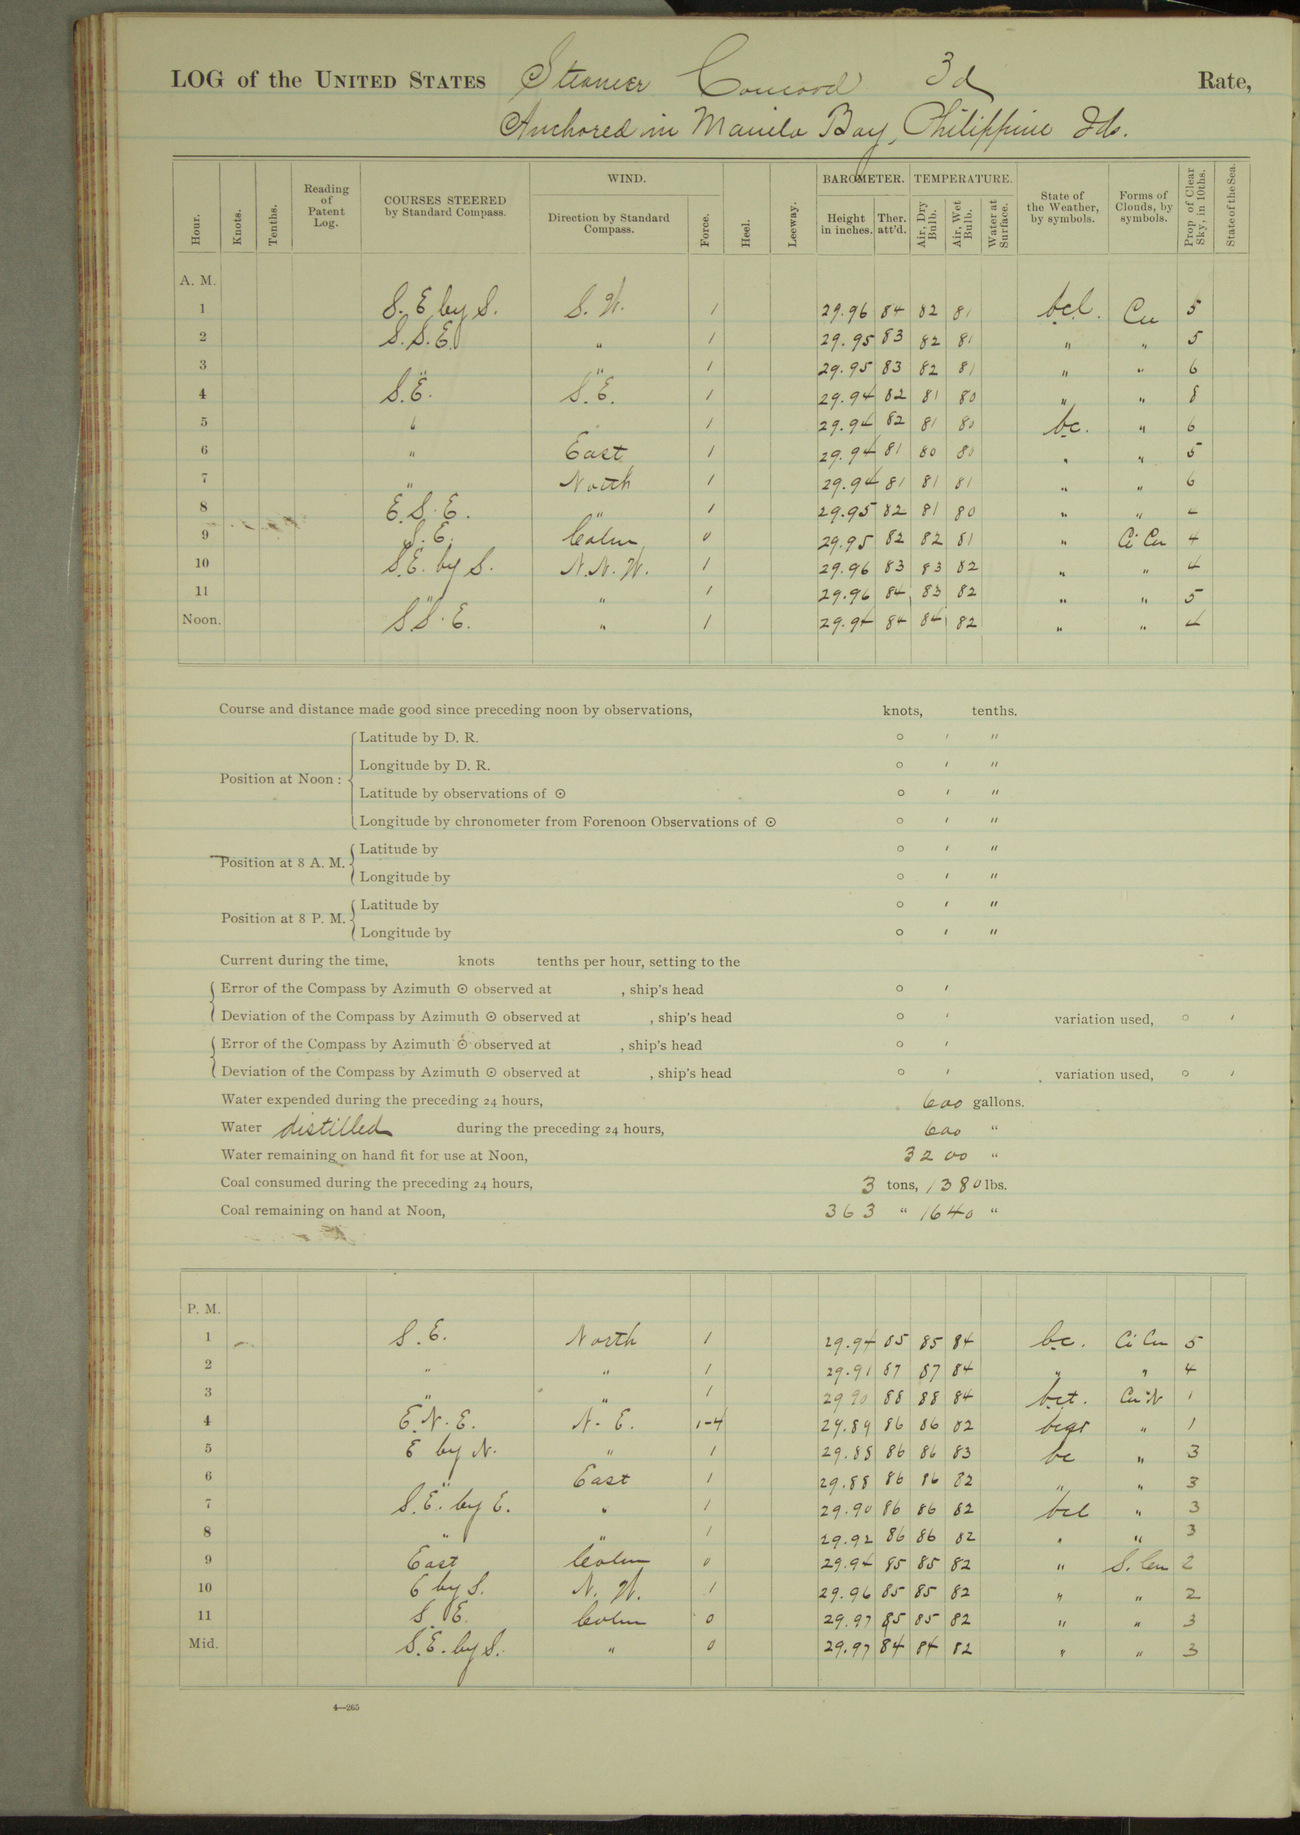 LOG of the UNITED STATES Steamer Concord 3d Rate,
Anchored in Manila Bay, Philippine Ids.
Hour. Knots. Tenths. Reading of Patent Log. COURSES STEERED by Standard Compass. WIND. Direction by Standard Compass. Force. Heel. Leeway. BAROMETER. Height in inches. Ther. att'd. TEMPERATURE. Air, Dry Bulb. Air, Wet Bulb. Water at Surface. State of the Weather, by symbols. Forms of Clouds, by symbols. Prop of Clear Sky, in 10ths. State of the Sea.
A. M.
1 S. E by S. S. W. 1 29.96 84 82 81 bcl. Cu 5
2 S. S. E. " 1 29.95 83 82 81 " " 5
3 " " 1 29.95 83 82 81 " " 6
4 S. E. S. E. 1 29.94 82 81 80 " " 8
5 " 1 29.94 82 81 80 bc. " 6
6 " East 1 29.94 81 80 80 " " 5
7 " North 1 29.94 81 81 81 " " 6
8 E. S. E. " 1 29.95 82 81 80 " "
9 S. E. Calm 0 29.95 82 82 81 " Ci Cu 4
10 S. E. by S. N. N. W. 1 29.96 83 83 82 " " 4
11 " " 1 29.96 84 83 82 " " 5
Noon. S. S. E. " 1 29.94 84 84 82 " " 4
Course and distance made good since preceding noon by observations, knots, tenths.
Position at Noon: Latitude by D. R. ° ′ ″
Longitude by D. R. ° ′ ″
Latitude by observations of ☉ ° ′ ″
Longitude by chronometer from Forenoon Observations of ☉ ° ′ ″
Position at 8 A. M. Latitude by ° ′ ″
Longitude by ° ′ ″
Position at 8 P. M. Latitude by ° ′ ″
Longitude by ° ′ ″
Current during the time, knots tenths per hour, setting to the
Error of the Compass by Azimuth ☉ observed at , ship's head ° ′
Deviation of the Compass by Azimuth ☉ observed at , ship's head ° ′ variation used, ° ′
Error of the Compass by Azimuth ☉ observed at , ship's head ° ′
Deviation of the Compass by Azimuth ☉ observed at , ship's head ° ′ variation used, ° ′
Water expended during the preceding 24 hours, 600 gallons.
Water distilled during the preceding 24 hours, 600 "
Water remaining on hand fit for use at Noon, 3200 "
Coal consumed during the preceding 24 hours, 3 tons, 1380 lbs.
Coal remaining on hand at Noon, 363 " 1640 "
P. M.
1 S. E. North 1 29.94 85 85 84 bc. Ci Cu 5
2 " " 1 29.91 87 87 84 " " 4
3 " " 1 29 90 88 88 84 bct. Cu N 1
4 E. N. E. N. E. 1-4 29.89 86 86 82 bcqr " 1
5 E by N. " 1 29.88 86 86 83 bc " 3
6 " East 1 29.88 86 86 82 " " 3
7 S. E. by E. " 1 29.90 86 86 82 bcl " 3
8 " " 1 29.92 86 86 82 " " 3
9 East Calm 0 29.94 85 85 82 " S. Cu 2
10 E by S. N. W. 1 29.96 85 85 82 " " 2
11 S. E. Calm 0 29.97 85 85 82 " " 3
Mid. S. E. by S. " 0 29.97 84 84 82 " " 3
4—265